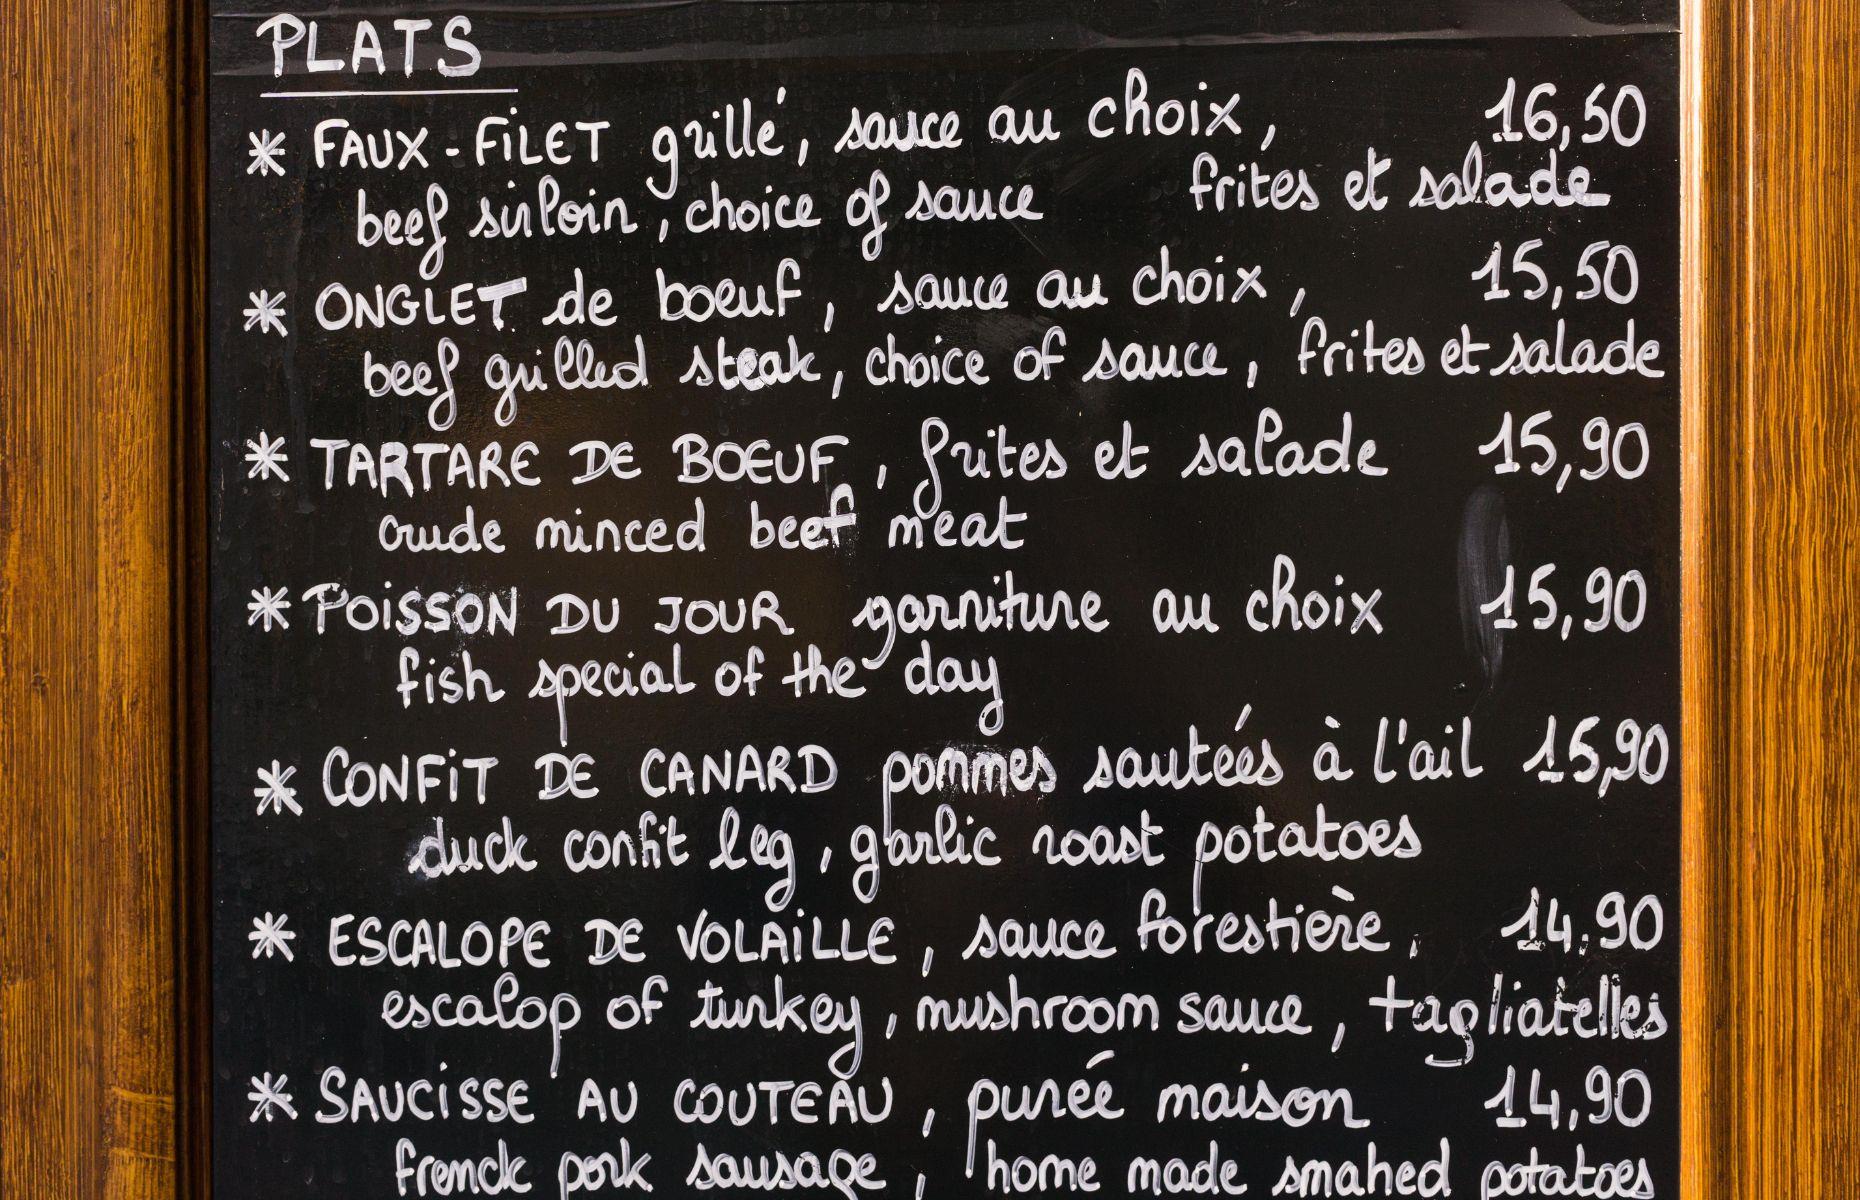 PLATS
* FAUX-FILET grillé, sauce au choix, 16,50
beef sirloin, choice of sauce frites et salade
* ONGLET de boeuf, sauce au choix, 15,50
beef grilled steak, choice of sauce, frites et salade
* TARTARE DE BOEUF, frites et salade 15,90
crude minced beef meat
* POISSON DU JOUR garniture au choix 15,90
fish special of the day
* CONFIT DE CANARD pommes sautées à l'ail 15,90
duck confit leg, garlic roast potatoes
* ESCALOPE DE VOLAILLE, sauce forestière, 14.90
escalop of turkey, mushroom sauce, tagliatelles
* SAUCISSE AU COUTEAU, purée maison 14,90
french pork sausage, home made smahed potatoes